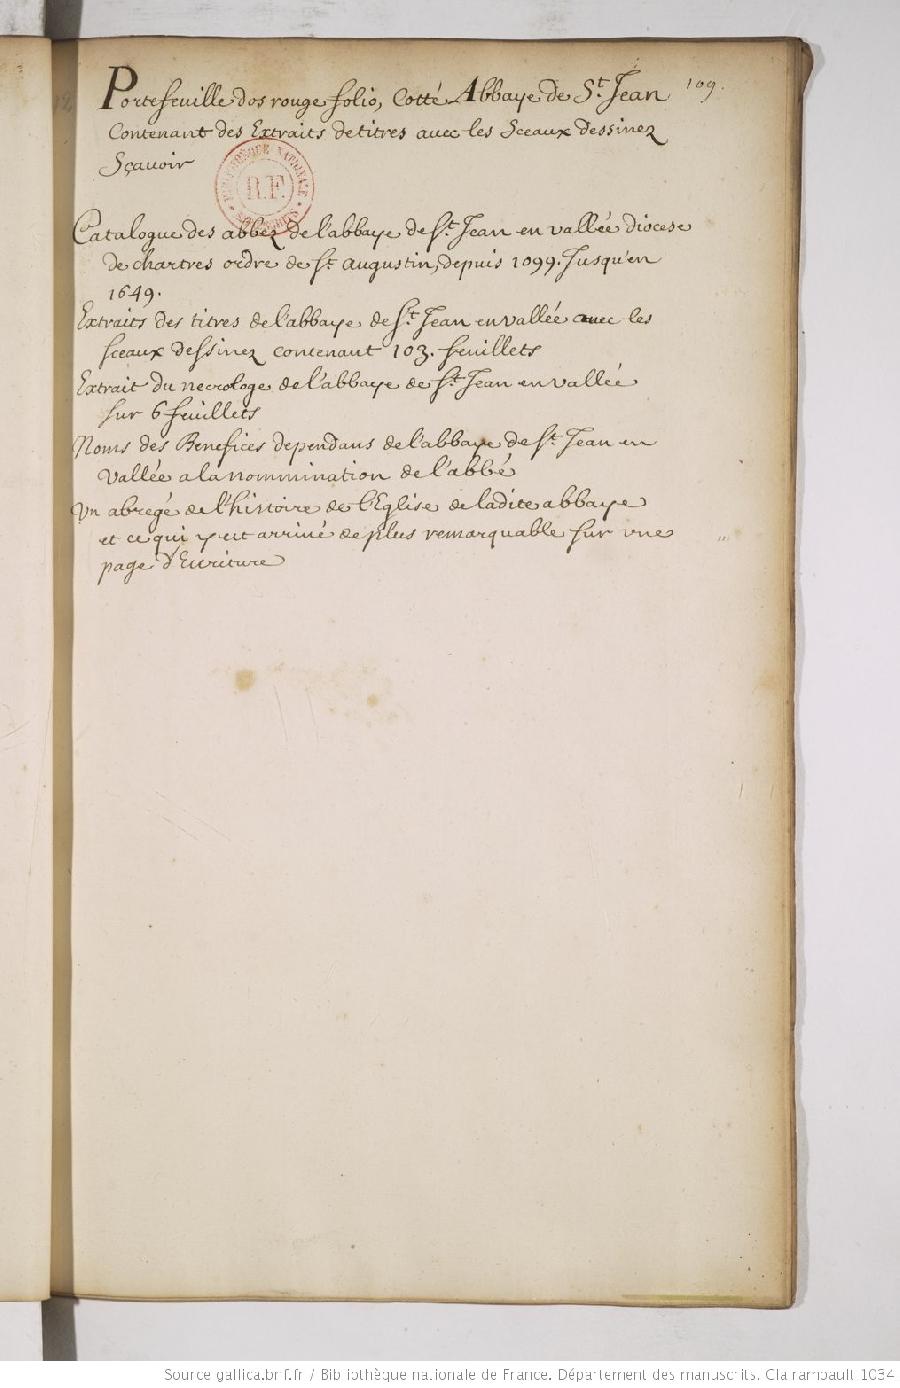 109.
Portefeuille dos rouge folio, Cotté Abbaye de St. Jean
Contenant des Extraits de titres avec les Sceaux dessinez
Sçavoir
BIBLIOTHÈQUE NATIONALE
R.F.
Catalogue des abbez de l'abbaye de St. Jean en vallée diocese
de chartres ordre de St. augustin, depuis 1099. Jusqu'en
1649.
Extraits des titres de l'abbaye de St. Jean en vallée avec les
sceaux dessinez contenant 103. feuillets
Extrait du necrologe de l'abbaye de St. Jean en vallée
sur 6 feuillets
Noms des Benefices dependans de l'abbaye de St. Jean en
vallée a la nommination de l'abbé
Un abregé de l'histoire de l'Eglise de ladite abbaye
et ce qui y est arrivé de plus remarquable sur une
page d'Ecriture
Source gallica.bnf.fr / Bibliothèque nationale de France. Département des manuscrits. Clairambault 1034